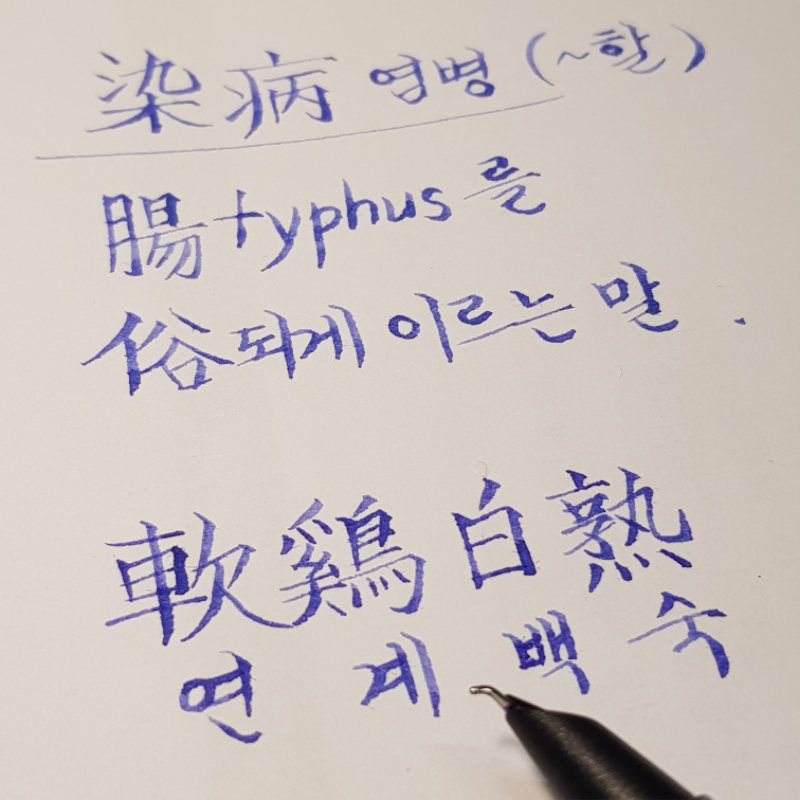 染病 염병 (~할)
腸 typhus 를
俗되게 이르는 말.
軟鷄白熟
연 계 백 숙